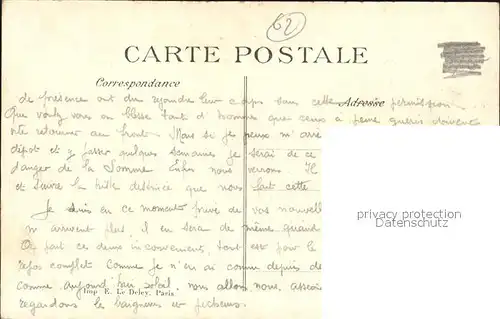 62
CARTE POSTALE
Correspondance
Adresse
de présence ont du rejoindre leur corps sans cette permission
Que voulez vous on blesse tant d'hommes que ceux à peine guéris doivent
vite retourner au front. Mais si je peux m'arrê
dépôt et y passer quelques semaines je serai de ce
danger de la Somme. Enfin nous verrons. Il
et suivre la triste destinée que nous fait cette
Je suis en ce moment privé de vos nouvelle
m'arrivent plus il en sera de même quand
On fait ces demi inconvenients, tout est pour le
repos complet. Comme je n'en ai connu depuis de
comme aujourd'hui soleil, nous allons nous asseoir
regardons les baigneurs et pêcheurs.
Imp. E. Le Deley, Paris
privacy protection
www.oldthing.de
Datenschutz